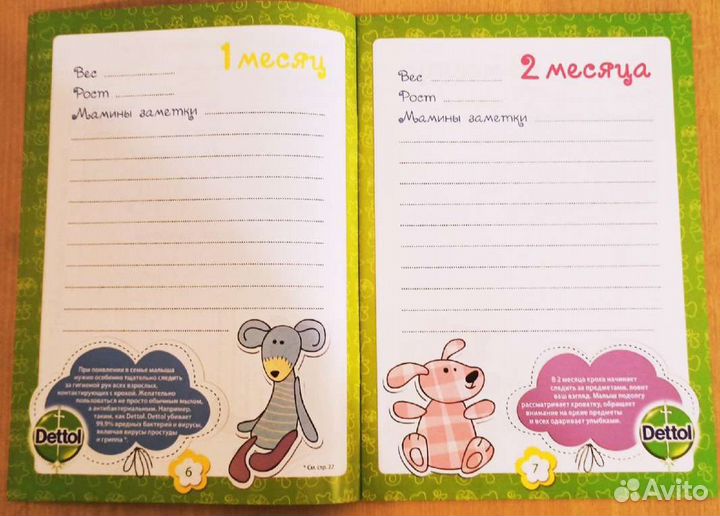 1 месяц
Вес
Рост
Мамины заметки
При появлении в семье малыша
нужно особенно тщательно следить
за гигиеной рук всех взрослых,
контактирующих с крохой. Желательно
пользоваться не просто обычным мылом,
а антибактериальным. Например,
таким, как Dettol. Dettol убивает
99,9% вредных бактерий и вирусы,
включая вирусы простуды
и гриппа *.
Dettol
6
* См. стр. 27
2 месяца
Вес
Рост
Мамины заметки
В 2 месяца кроха начинает
следить за предметами, ловит
ваш взгляд. Малыш подолгу
рассматривает кроватку, обращает
внимание на яркие предметы
и всех одаривает улыбками.
Dettol
7
Avito